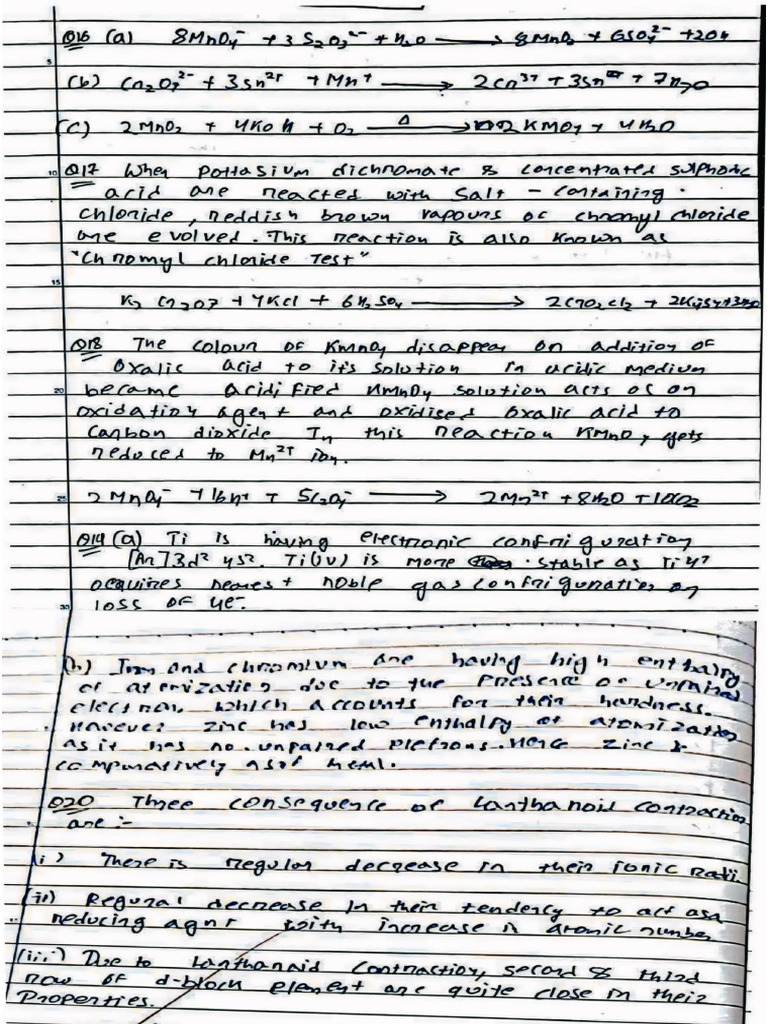 Q16 (a) 8MnO4⁻ + 3S2O3²⁻ + H2O ⟶ 8MnO2 + 6SO4²⁻ + 2OH
5
(b) Cr2O7²⁻ + 3Sn²⁺ + 14H⁺ ⟶ 2Cr³⁺ + 3Sn⁴⁺ + 7H2O
(c) 2MnO2 + 4KOH + O2 —Δ→ 2KMO4 + 4H2O
10 Q17 When pottasium dichromate & concentrated sulphoric
acid are reacted with salt - containing
chloride, reddish brown vapours of chromyl chloride
are evolved. This reaction is also known as
"Chromyl chloride Test"
15
K2Cr2O7 + 4KCl + 6H2SO4 ⟶ 2CrO2Cl2 + + 3H2O
Q18 The colour of KMnO4 disappear on addition of
oxalic acid to its solution in acidic medium
20 became acidified KMnO4 solution acts as an
oxidation agent and oxidised oxalic acid to
carbon dioxide In this reaction KMnO4 gets
reduced to Mn²⁺ ion.
25 2MnO4⁻ + 16H⁺ + 5C2O4⁻ ⟶ 2Mn²⁺ + 8H2O + 10CO2
Q19 (a) Ti is having electronic confriguration
[Ar]3d² 4s². Ti(iv) is more stable as Ti⁴⁺
acquires nearest noble gas confriguration on
30 loss of 4e⁻.
(b) Iron and chromium are having high enthalpy
of atomization due to the presence of unpaired
electron, which accounts for their hardness.
However zinc has low enthalpy of atomization
as it has no unpaired eletrons. Hence zinc is
comparatively a soft metal.
Q20 Three consequence of Lanthanoid contraction
are :-
(i) There is regular decrease in their ionic radii.
(ii) Regural decrease in their tendency to act as a
reducing agnt with increase in atomic number
(iii) Due to Lanthanoid contraction, second & third
row of d-block element are quite close in their
Properties.